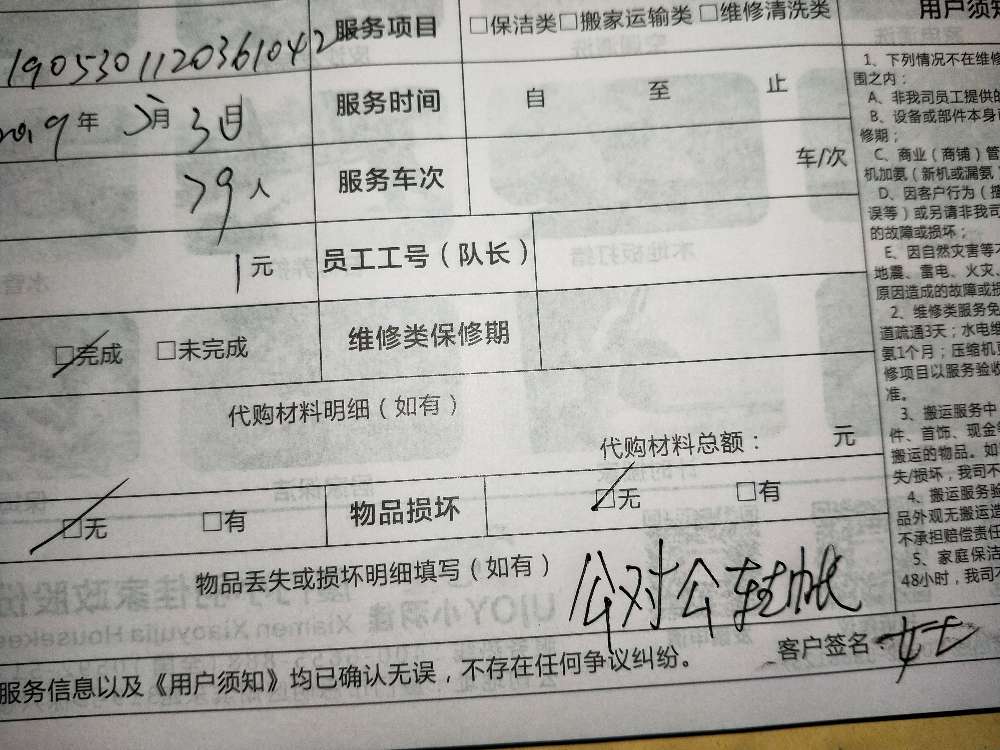 服务项目 □保洁类□搬家运输类 □维修清洗类
1905301120361042
2019年 5月 3日 服务时间 自 至 止
服务车次 车/次
79人
1元 员工工号（队长）
□完成 □未完成 维修类保修期
代购材料明细（如有）
代购材料总额： 元
□无 □有 物品损坏 □无 □有
物品丢失或损坏明细填写（如有）
公对公转帐
服务信息以及《用户须知》均已确认无误，不存在任何争议纠纷。
客户签名：
用户须知
1、下列情况不在维修
围之内：
A、非我司员工提供的
B、设备或部件本身
修期；
C、商业（商铺）管
机加氨（新机或漏氨）
D、因客户行为（
误等）或另请非我司
的故障或损坏；
E、因自然灾害等
地震、雷电、火灾、
原因造成的故障或损
2、维修类服务免
道疏通3天；水电维
氨1个月；压缩机
修项目以服务验收
准。
3、搬运服务中
件、首饰、现金
搬运的物品。如
失/损坏，我司不
4、搬运服务验
品外观无搬运造
不承担赔偿责任
5、家庭保洁
48小时，我司不